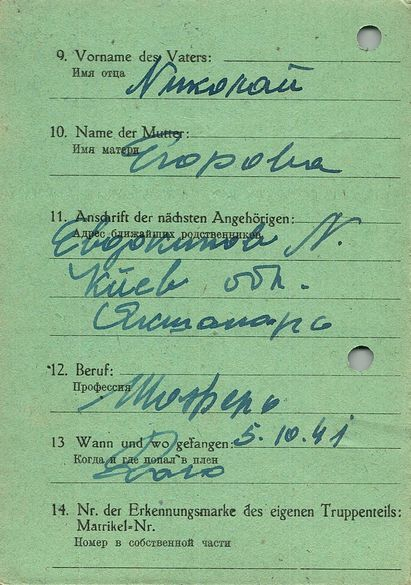 9. Vorname des Vaters:
Имя отца
Николай
10. Name der Mutter:
Имя матери
Егорова
11. Anschrift der nächsten Angehörigen:
Адрес ближайших родственников
Евдокимов N.
Киев обл.
12. Beruf:
Профессия
Шофёръ
13 Wann und wo gefangen: 5.10.41
Когда и где попал в плен
14. Nr. der Erkennungsmarke des eigenen Truppenteils:
Matrikel-Nr.
Номер в собственной части